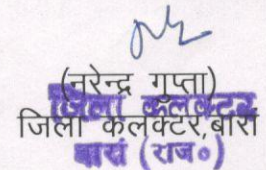 (नरेन्द्र गुप्ता)
जिला कलक्टर
जिला कलेक्टर,बारां
बारां (राज०)